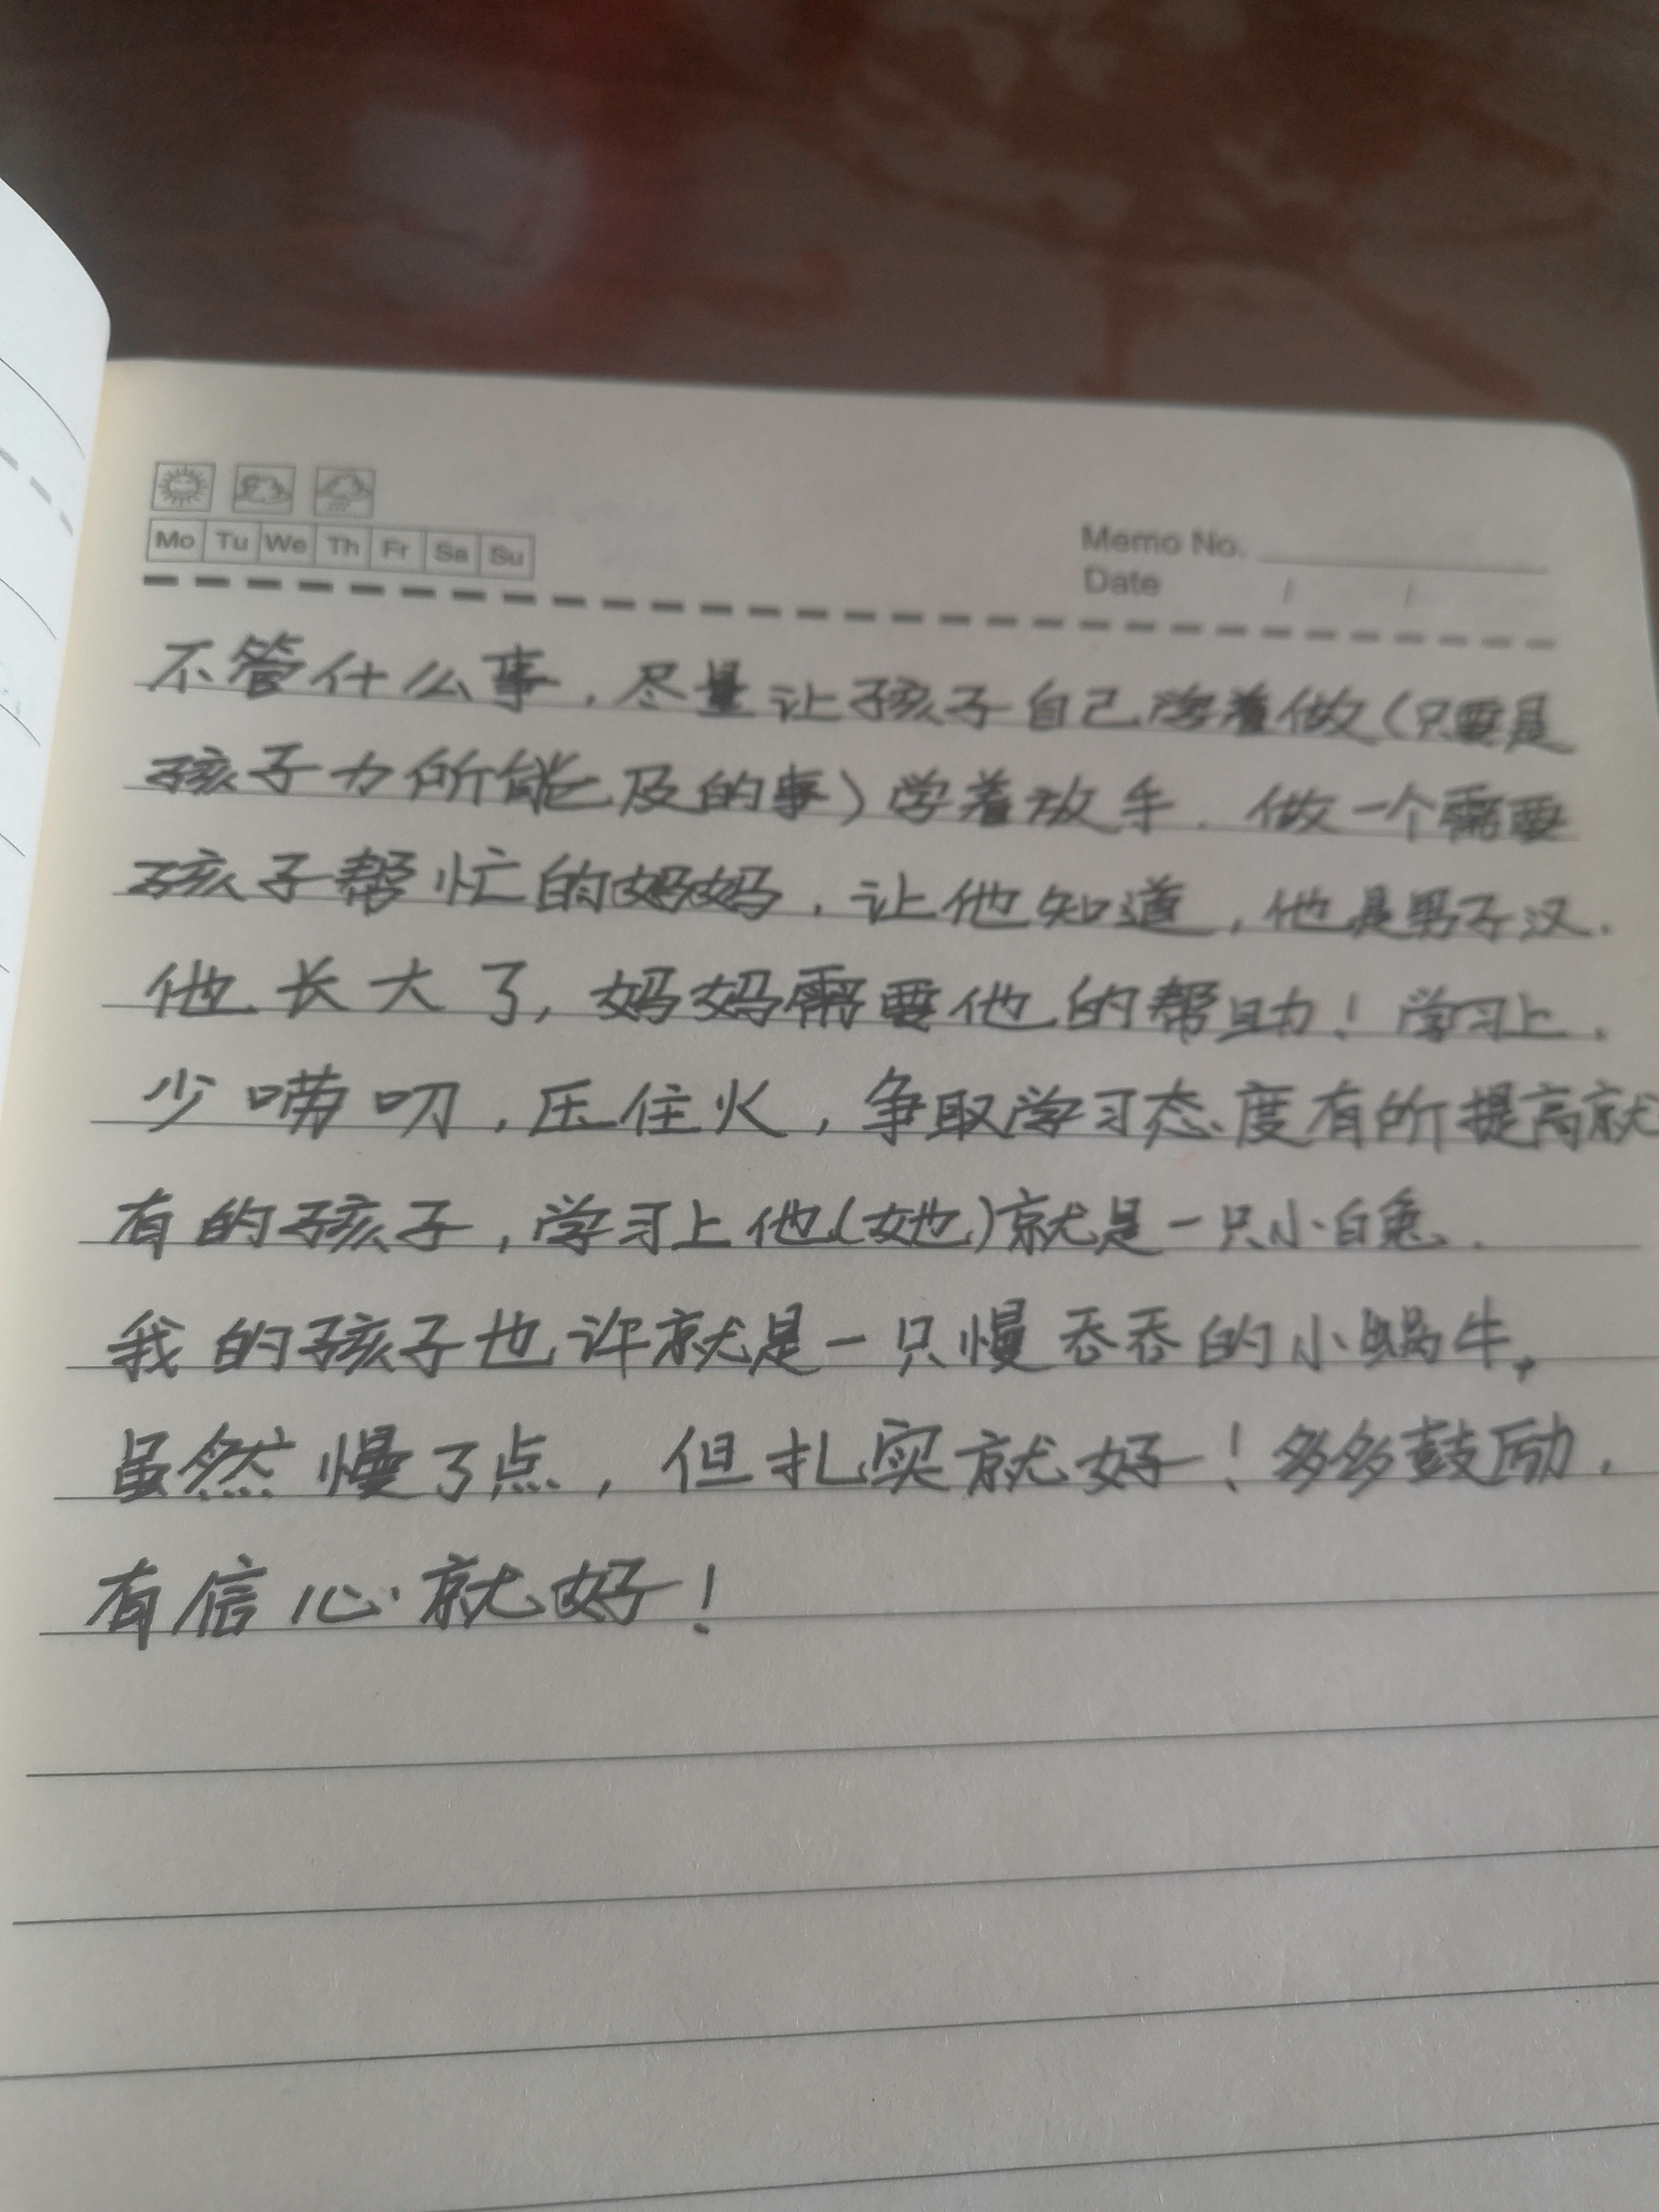 Mo Tu We Th Fr Sa Su
Memo No.
Date / /
不管什么事，尽量让孩子自己学着做（只要是
孩子力所能及的事）学着放手．做一个需要
孩子帮忙的妈妈，让他知道，他是男子汉．
他长大了，妈妈需要他的帮助！学习上．
少唠叨，压住火，争取学习态度有所提高就
有的孩子，学习上他（她）就是一只小白兔．
我的孩子也许就是一只慢吞吞的小蜗牛，
虽然慢了点，但扎实就好！多多鼓励．
有信心就好！